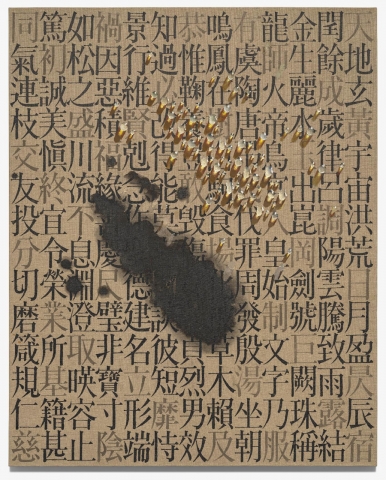 天地玄黃宇宙洪荒日月盈昃辰宿
閏餘成歲律呂調陽雲騰致雨露結
金生麗水出崑岡劍號巨闕珠稱
龍師火帝鳥官人皇始制文字乃服
有虞陶唐伐罪周發殷湯坐朝
鳴鳳在食場草木賴及
恭惟鞠敢毁傷貞烈男效
知過得能莫談彼短靡恃
景行維賢剋念德建名立形端
禍因惡積福緣慶璧非寶寸陰
如松之盛川流不息淵澄取暎容止
篤初誠美愼終宜令榮業所基籍甚
同氣連枝交友投分切磨箴規仁慈